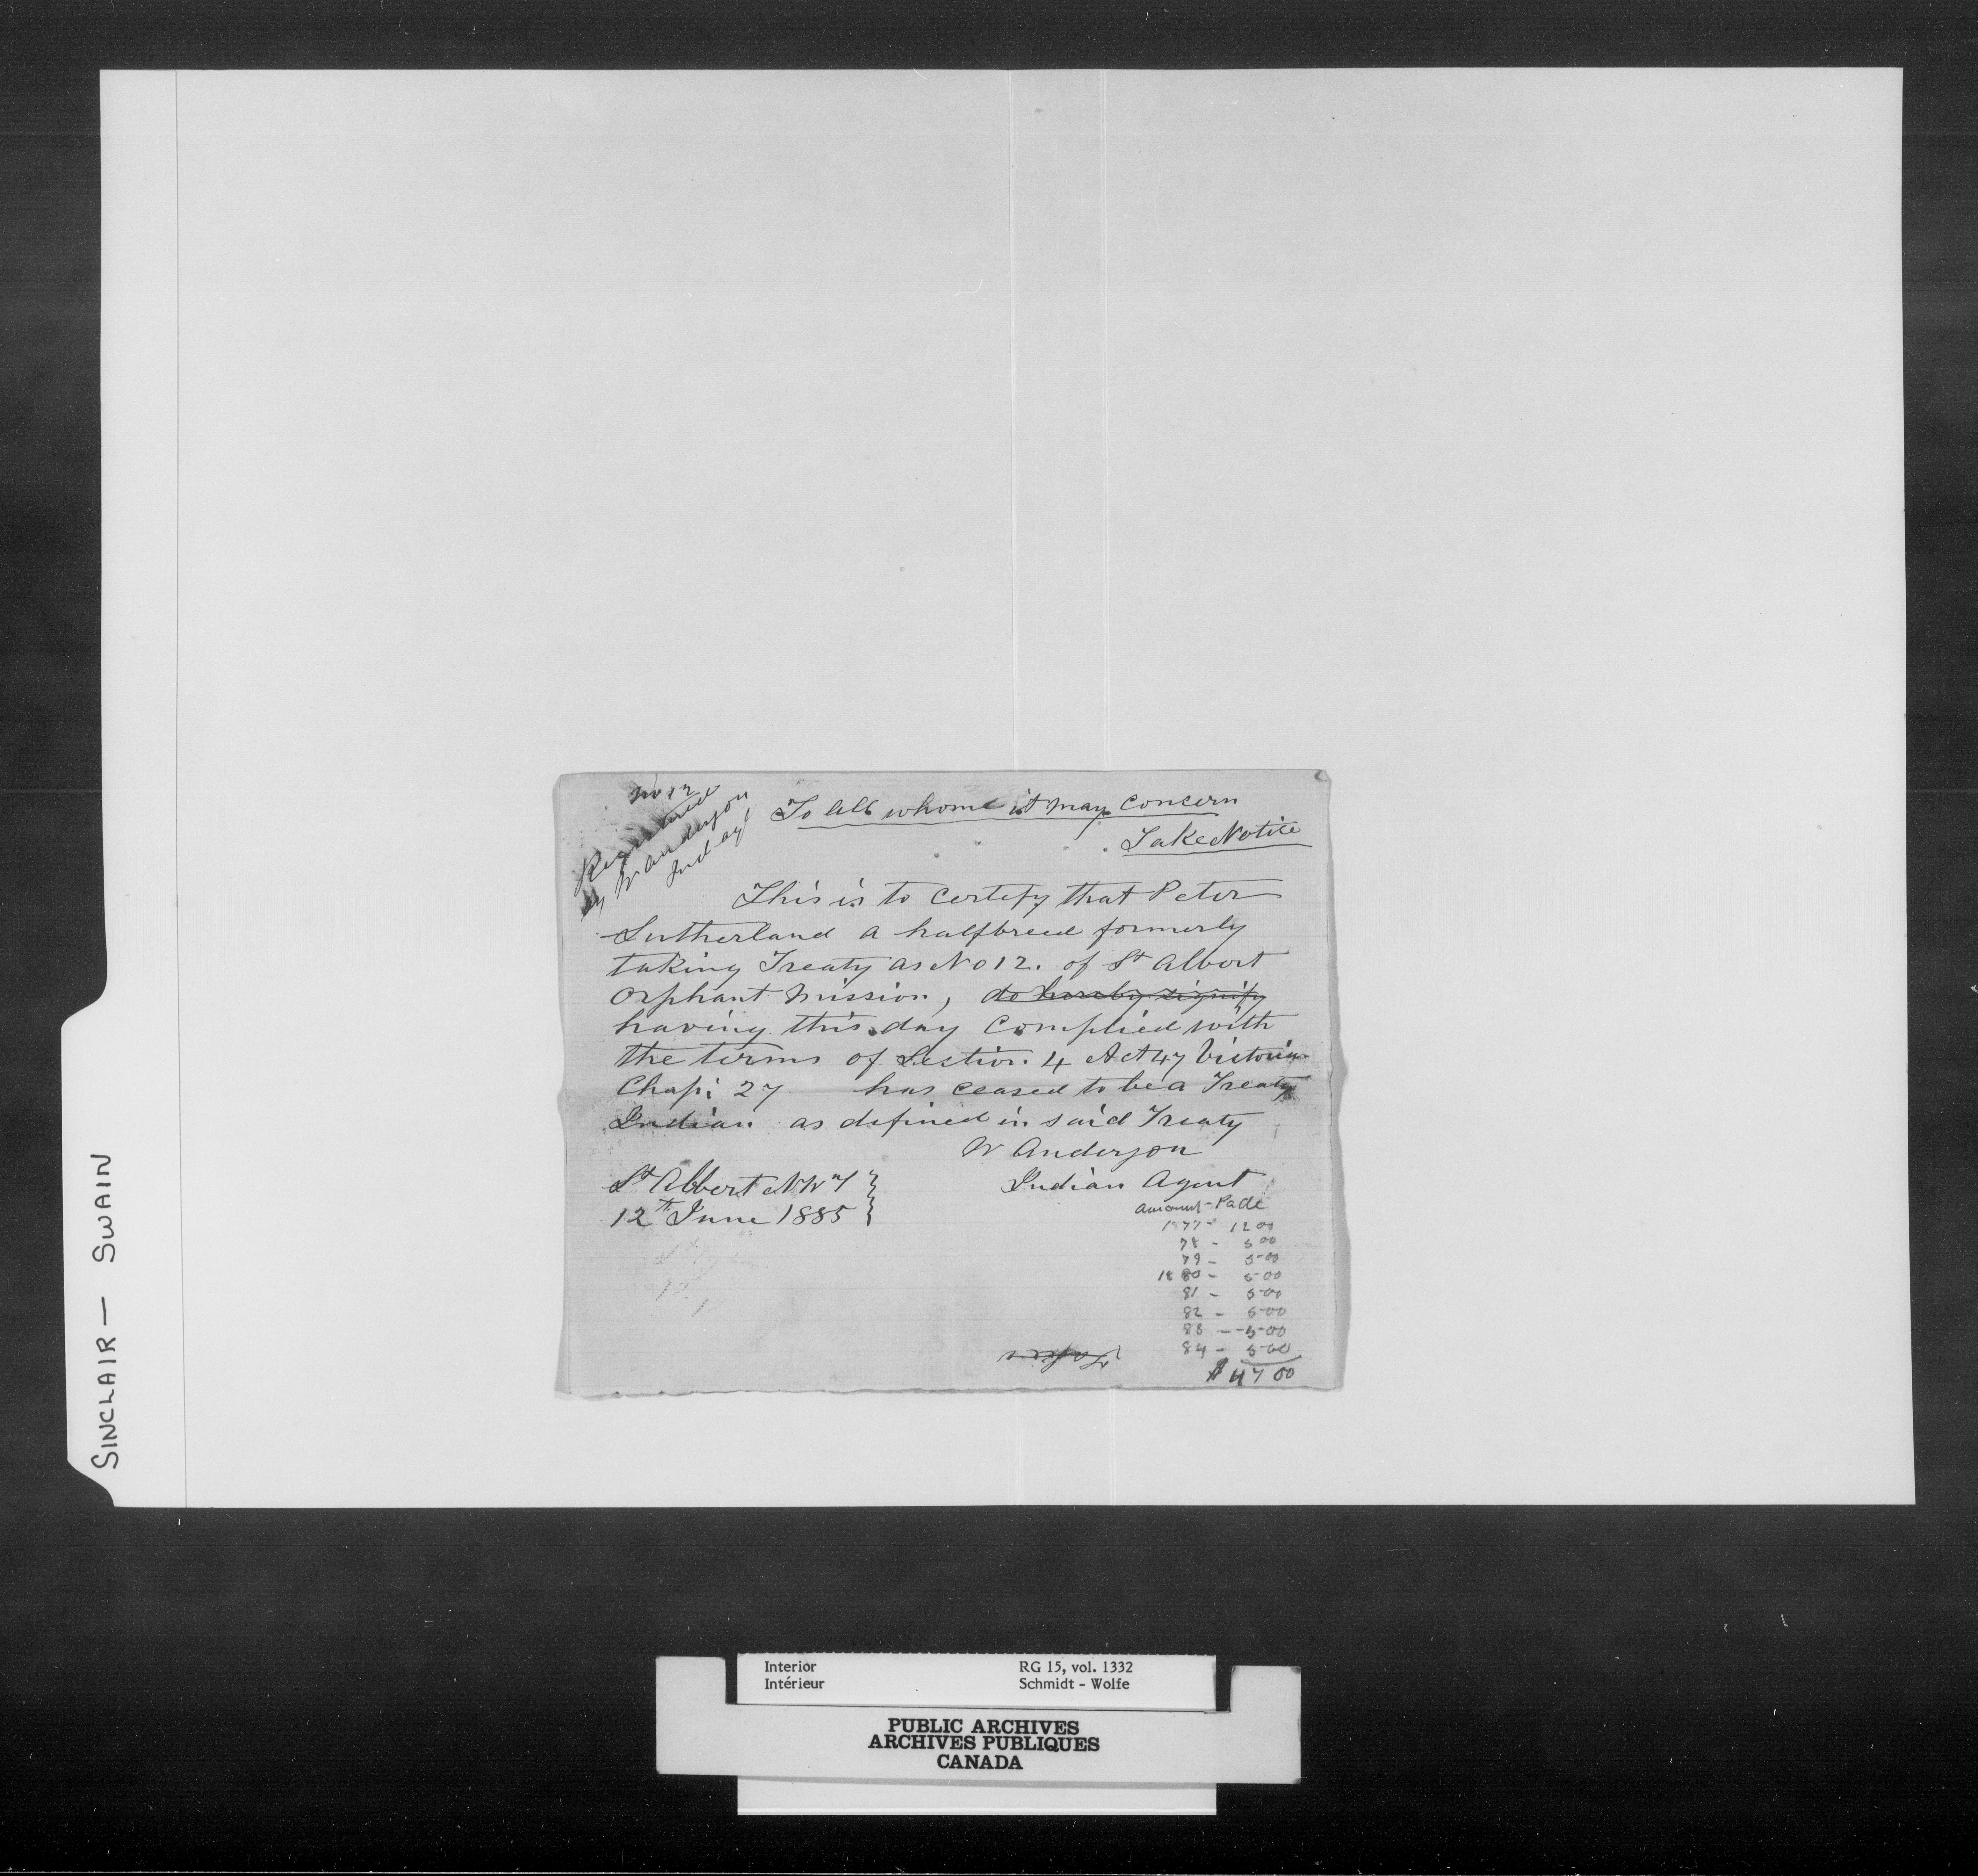 No 12
Registered
by W Anderson
Ind agt
To all whome it may Concern
Take Notice
This is to Certify that Peter
Sutherland a halfbreed formerly
taking Treaty as No 12. of St Albert
Orphant Mission, do hereby signify
having this day Complied with
the terms of Section 4 Act 47 Victoria
Chap: 27 has ceased to be a Treaty
Indian as defined in said Treaty
W Anderson
Indian Agent
St Albert NWT
12th June 1885
Amount Paid
1877 - 12 00
78 - 5 00
79 - 5 00
1880 - 5 00
81 - 5 00
82 - 5 00
83 - 5 00
84 - 5 00
$ 47 00
SINCLAIR — SWAIN
Interior RG 15, vol. 1332
Intérieur Schmidt - Wolfe
PUBLIC ARCHIVES
ARCHIVES PUBLIQUES
CANADA